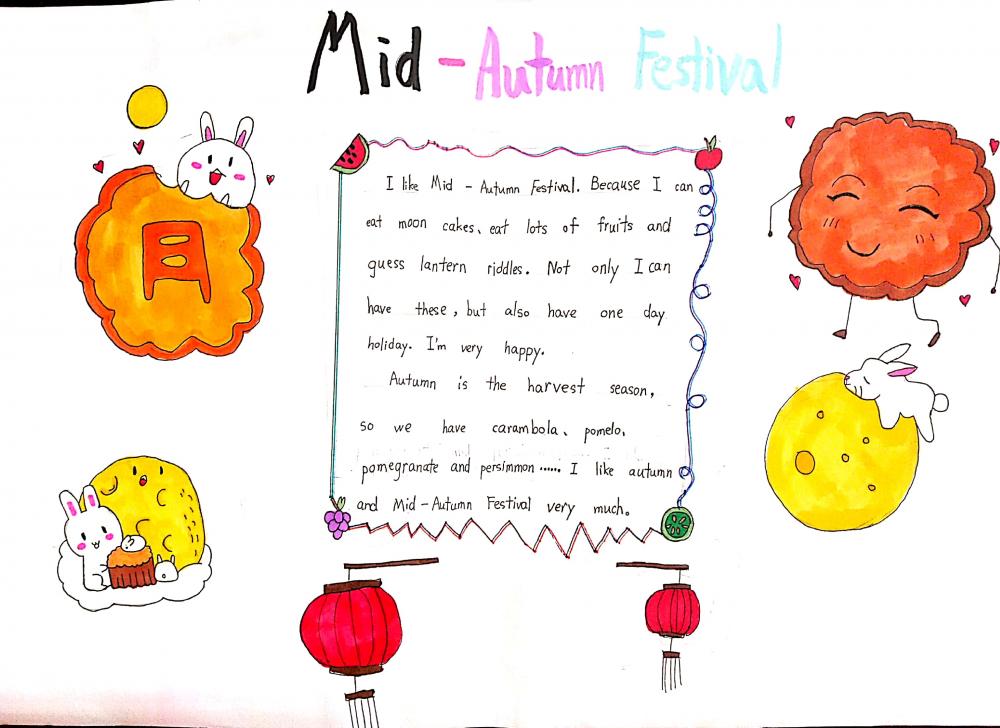 Mid - Autumn Festival
月
I like Mid - Autumn Festival. Because I can
eat moon cakes、eat lots of fruits and
guess lantern riddles. Not only I can
have these, but also have one day
holiday. I'm very happy.
Autumn is the harvest season,
so we have carambola、pomelo,
pomegranate and persimmon …… I like autumn
and Mid - Autumn Festival very much.